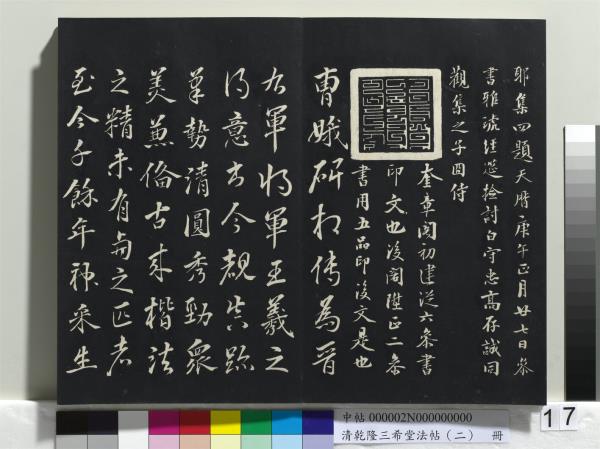 耶集四題天曆庚午正月廿七日參
書雅琥經筵撿討白守忠高存誠同
觀集之子同侍
奎章閣初建從六參書
印文也後閣陞正二參
書用五品印後文是也
曹娥碑相傳為晉
右軍將軍王羲之
得意書今觀真跡
筆勢清圓秀勁衆
美兼備古來楷法
之精未有與之匹者
至今千餘年神采生
中帖 000002N000000000
清乾隆三希堂法帖（二） 冊
17